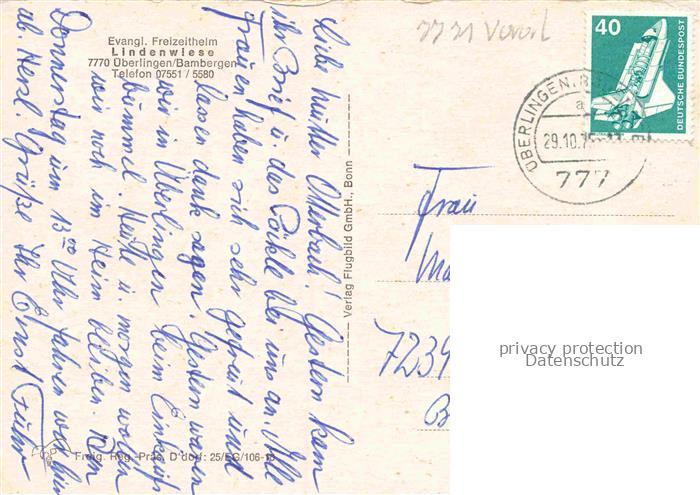 Evangl. Freizeitheim
Lindenwiese
7770 Überlingen/Bambergen
Telefon 07551 / 5580
Liebe Mutter Otterbach! Gestern kam
ihr Brief u. das Päckle bei uns an. Alle
Frauen haben sich sehr gefreut und
lassen dank sagen. Gestern waren
wir in Überlingen beim Einkaufs
bummel. Heute u. morgen wollen
wir noch im Heim bleiben.
Donnerstag um 13 00 Uhr fahren wir hier
ab. Herzl. Grüße Ihr Ernst Fuhr
Verlag Flugbild GmbH., Bonn
Freig. Reg.-Präs. D'dorf: 25/EG/106-18
7731
40
DEUTSCHE BUNDESPOST
ÜBERLINGEN
a
29.10.75
777
Frau
7239
privacy protection
Datenschutz